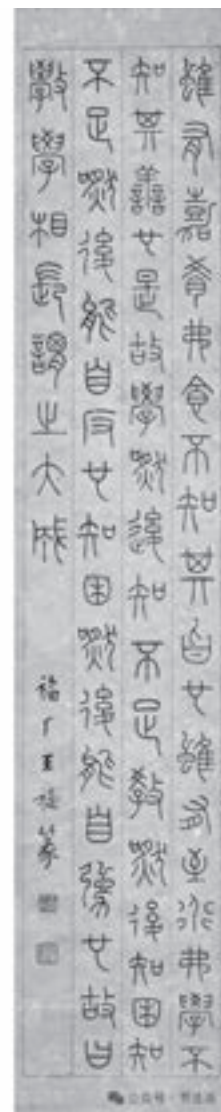 雖有嘉肴弗食不知其旨也雖有至道弗學不
知其善也是故學然後知不足教然後知困知
不足然後能自反也知困然後能自強也故曰
斆學相長謂之大成
福厂王禔篆
公众号